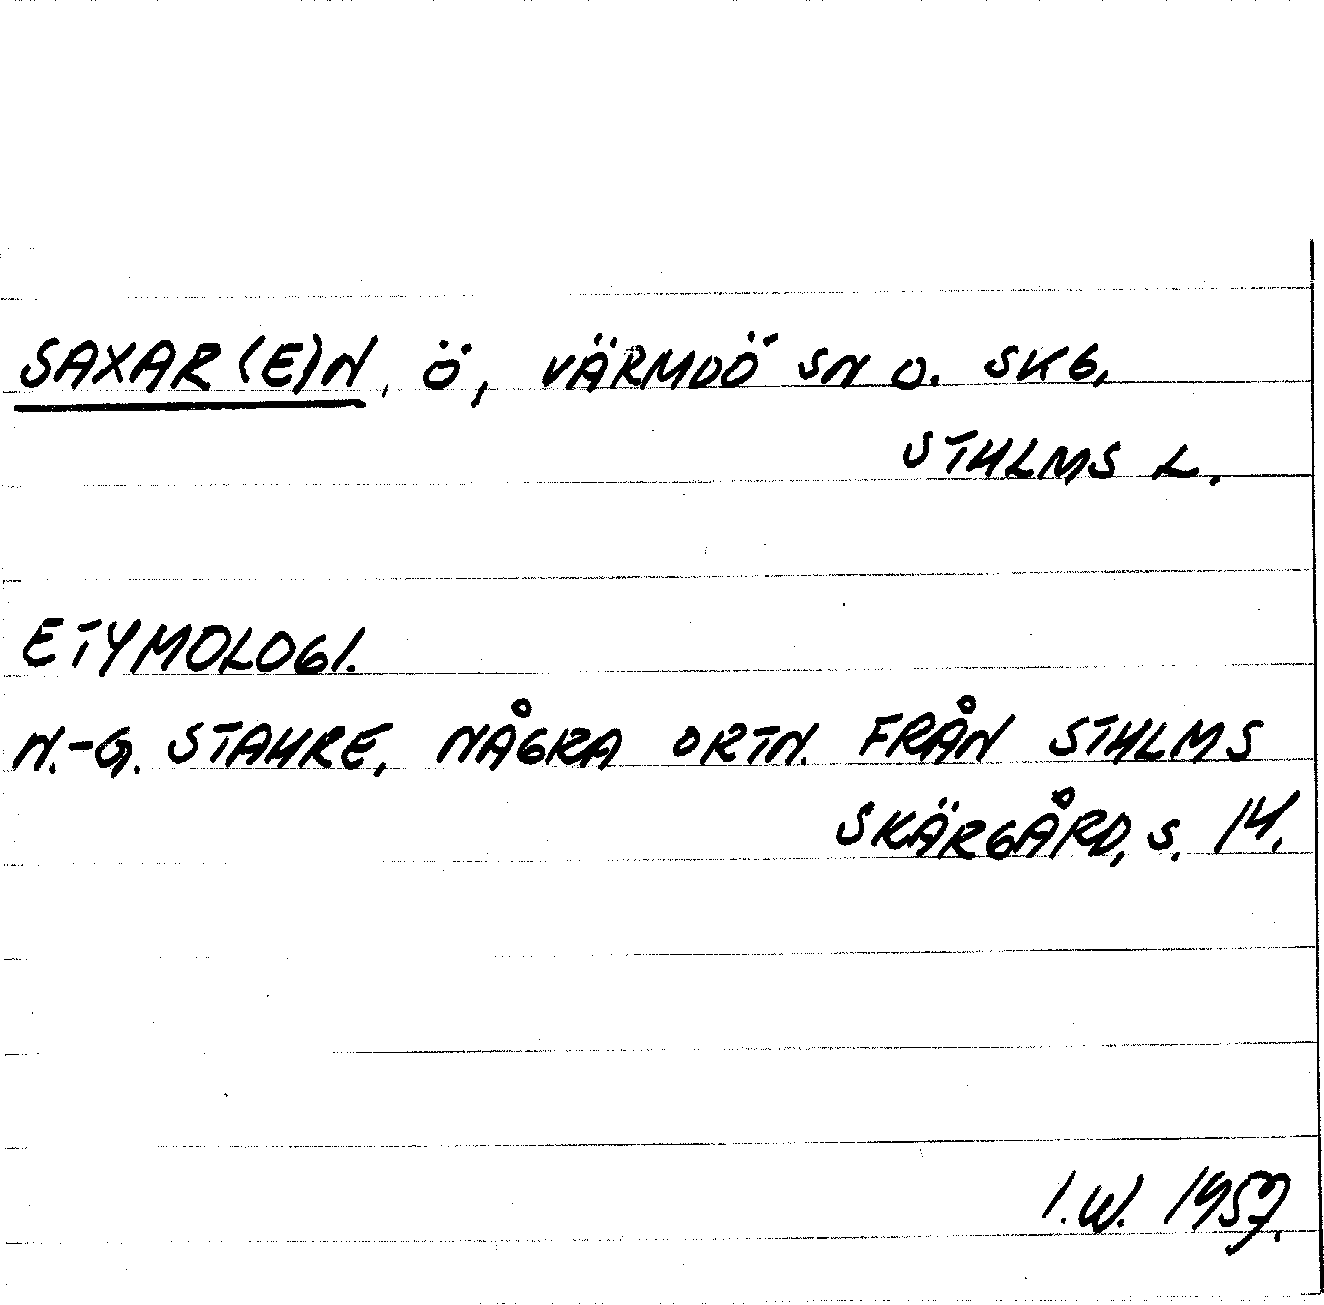 SAXAR(E)N, Ö, VÄRMDÖ SN O. SKG,
STHLMS L.
ETYMOLOGI.
N.-G. STAHRE, NÅGRA ORTN. FRÅN STHLMS
SKÄRGÅRD, S. 14.
I.W. 1957.